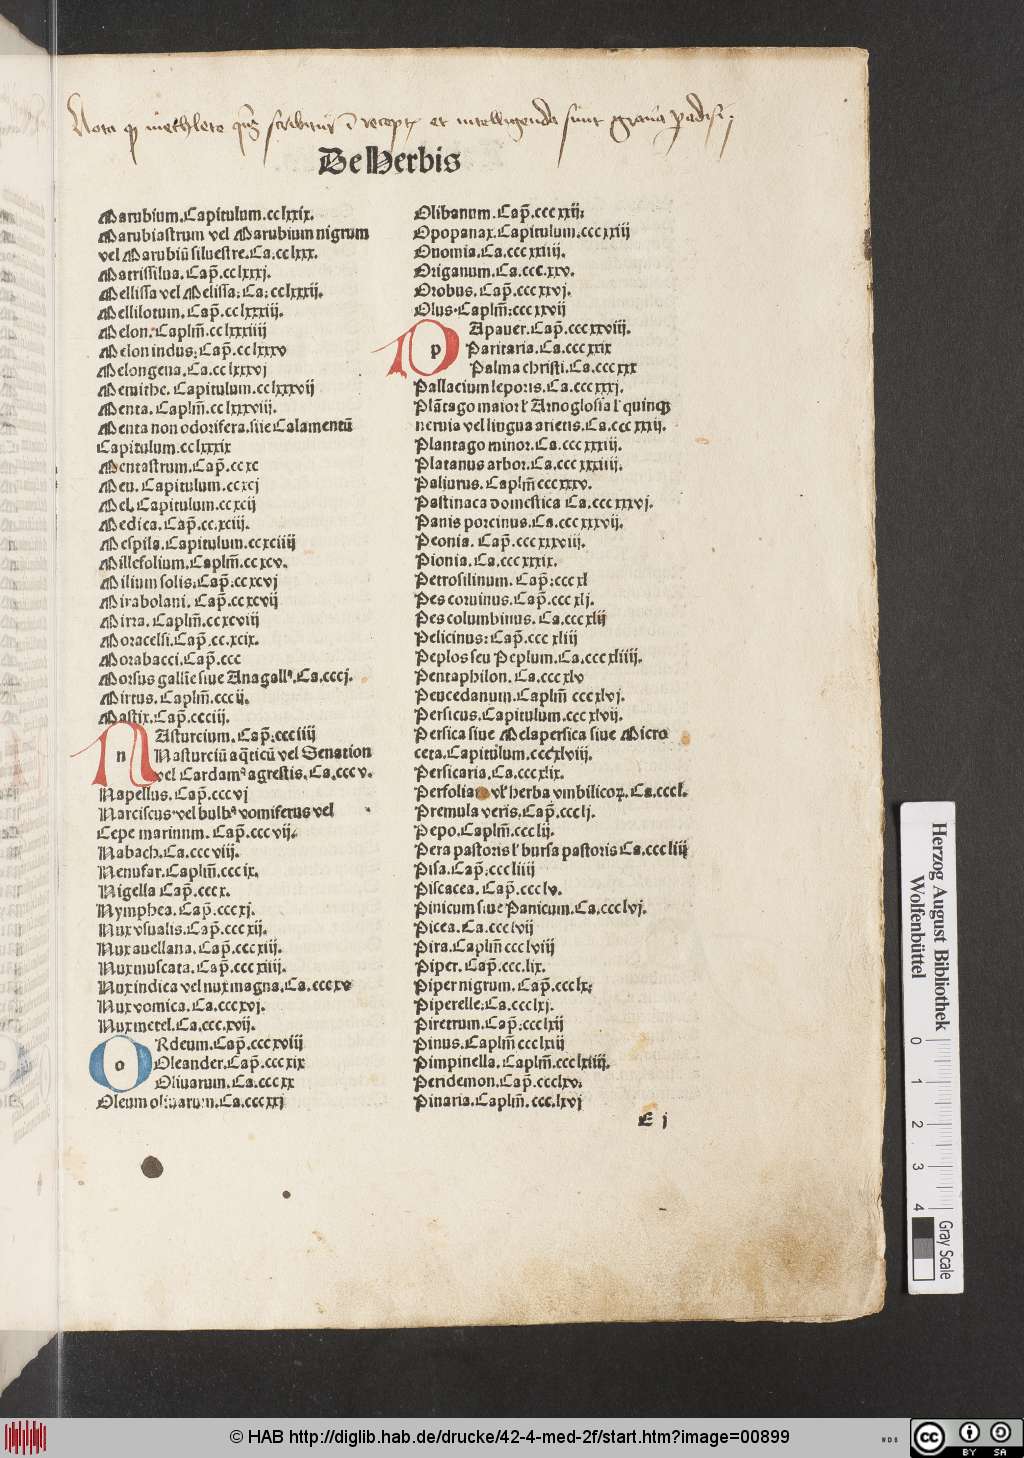 Nota qp methlete qñ scribitur ĩ recept et intelligenda sunt grana padisi.
De Herbis
Marubium.Capitulum.cclxxix.
Marubiastrum vel Marubium nigrum
vel Marubiũ siluestre.Ca.cclxxx.
Matrissilua.Cap̃.cclxxxj.
Mellissa vel Melissa.Ca.cclxxxij.
Mellilotum.Cap̃.cclxxxiij.
Melon.Caplm̃.cclxxxiiij
Melon indus.Cap̃.cclxxxv
Melongena.Ca.cclxxxvj
Memithe.Capitulum.cclxxxvij
Menta.Caplm̃.cclxxxviij.
Menta non odorifera.siue Calamentũ
Capitulum.cclxxxix
Mentastrum.Cap̃.ccxc
Meu.Capitulum.ccxcj
Mel.Capitulum.ccxcij
Medica.Cap̃.cc.xciij.
Mespila.Capitulum.ccxciiij
Millefolium.Caplm̃.ccxcv.
Milium solis.Cap̃.ccxcvj
Mirabolani.Cap̃.ccxcvij
Mirra.Caplm̃.ccxcviij
Moracelsi.Cap̃.cc.xcix.
Morabacci.Cap̃.ccc
Morsus galline siue Anagallꝰ.Ca.cccj.
Mirtus.Caplm̃.cccij.
Mastix.Cap̃.ccciij.
n Asturcium.Cap̃.ccciiij
Nasturciũ aq̃ticũ vel Senation
vel Cardamꝰ agrestis.Ca.cccv.
Napellus.Cap̃.cccvj
Narciscus vel bulbꝰ vomiferus vel
Cepe marinum.Cap̃.cccvij.
Nabach.Ca.cccviij.
Nenufar.Caplm̃.cccix.
Nigella Cap̃.cccx.
Nymphea.Cap̃.cccxj.
Nux vsualis.Cap̃.cccxij.
Nux auellana.Cap̃.cccxiij.
Nux muscata.Cap̃.cccxiiij.
Nux indica vel nux magna.Ca.cccxv
Nux vomica.Ca.cccxvj.
Nux metel.Ca.ccc.xvij.
o Rdeum.Cap̃.cccxviij
Oleander.Cap̃.cccxix
Oliuarum.Ca.cccxx
Oleum oliuarum.Ca.cccxxj
Olibanum.Cap̃.cccxxij.
Opopanax.Capitulum.cccxxiij
Onomia.Ca.cccxxiiij.
Origanum.Ca.ccc.xxv.
Orobus.Cap̃.cccxxvj.
Olus.Caplm̃.cccxxvij
p Apauer.Cap̃.cccxxviij.
Paritaria.Ca.cccxxix
Palma christi.Ca.cccxxx
Pallacium leporis.Ca.cccxxxj.
Plãtago maior ł Arnoglosia ł quinqȝ
neruia vel lingua arietis.Ca.cccxxxij.
Plantago minor.Ca.cccxxxiij.
Platanus arbor.Ca.cccxxxiiij.
Paliurus.Caplm̃ cccxxxv.
Pastinaca domestica Ca.cccxxxvj.
Panis porcinus.Ca.cccxxxvij.
Peonia.Cap̃.cccxxxviij.
Pionia.Ca.cccxxxix.
Petrosilinum.Cap̃.cccxl
Pes coruinus.Cap̃.cccxlj.
Pes columbinus.Ca.cccxlij
Pelicinus.Cap̃.cccxliij
Peplos seu Peplum.Ca.cccxliiij.
Pentaphilon.Ca.cccxlv
Peucedanum.Caplm̃ cccxlvj.
Persicus.Capitulum.cccxlvij.
Persica siue Melapersica siue Micro
ceta.Capitulum.cccxlviij.
Persicaria.Ca.cccxlix.
Perfoliata vł herba vmbilicoꝝ.Ca.cccl.
Premula veris.Cap̃.cccli.
Pepo.Caplm̃.ccclij.
Pera pastoris ł bursa pastoris Ca.cccliij
Pisa.Cap̃.cccliiij
Piscacea.Cap̃.ccclv.
Pinicum siue Panicum.Ca.ccclvj.
Picea.Ca.ccclvij
Pira.Caplm̃ ccclviij
Piper.Cap̃.ccc.lix.
Piper nigrum.Cap̃.ccclx.
Piperelle.Ca.ccclxj.
Piretrum.Cap̃.ccclxij
Pinus.Caplm̃ ccclxiij
Pimpinella.Caplm̃.ccclxiiij.
Peridemon.Cap̃.ccclxv.
Pinaria.Caplm̃.ccc.lxvj
E j
Herzog August Bibliothek
Wolfenbüttel
0 1 2 3 4
Gray Scale
© HAB http://diglib.hab.de/drucke/42-4-med-2f/start.htm?image=00899
WDB
cc BY SA